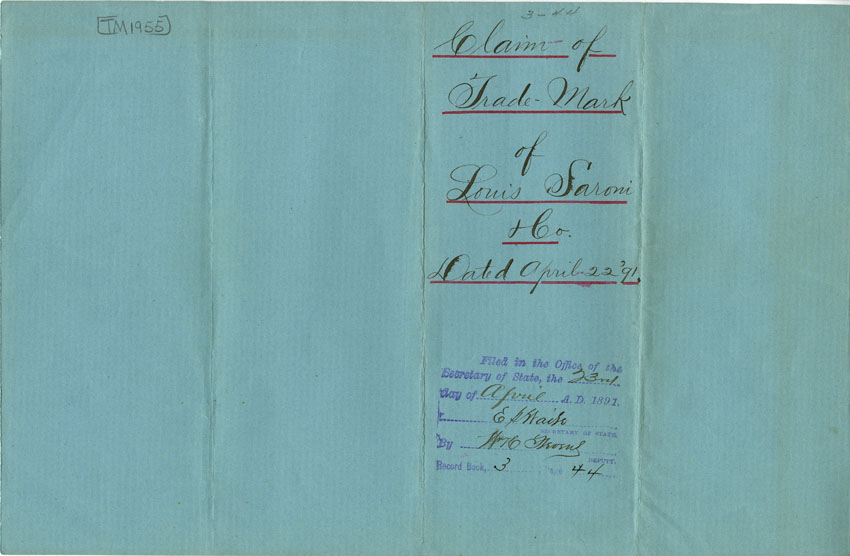 TM1955
3-44
Claim of
Trade-Mark
of
Louis Saroni
& Co.
Dated April 22 '91.
Filed in the Office of the
Secretary of State, the 23rd
day of April A. D. 1891.
E G Waite
SECRETARY OF STATE.
By
DEPUTY.
Record Book, 3 44